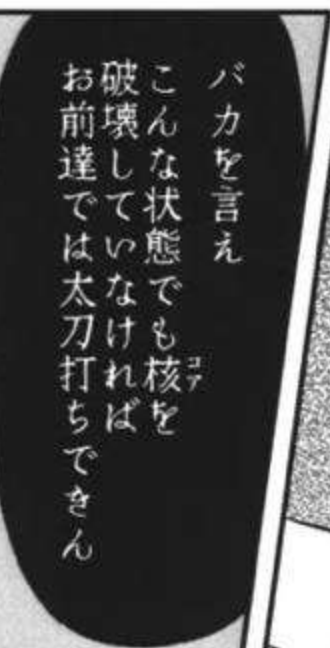 バカを言え
こんな状態でも核を
コア
破壊していなければ
お前達では太刀打ちできん